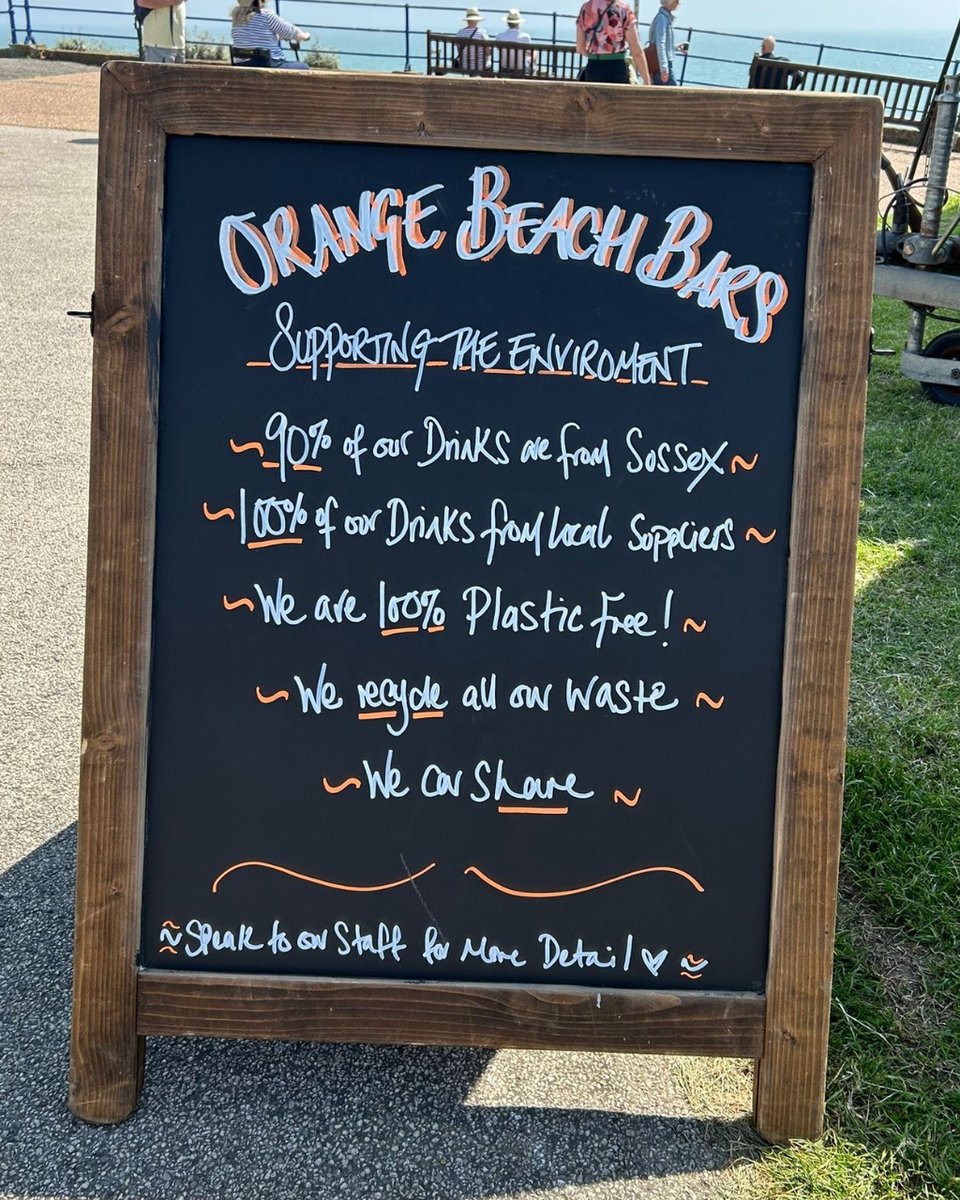 ORANGE BEACH BARS
SUPPORTING THE ENVIROMENT
~ 90% of our Drinks are from Sussex ~
~ 100% of our Drinks from local Suppliers ~
~ We are 100% Plastic Free! ~
~ We recycle all our waste ~
~ We car share ~
~ Speak to our Staff for More Detail ♡ ~